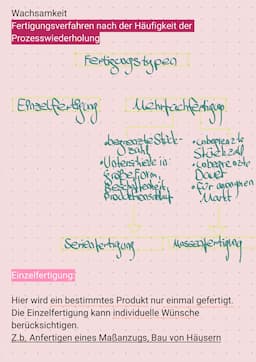 Wachsamkeit
Fertigungsverfahren nach der Häufigkeit der
Prozesswiederholung
Fertigungstypen
Einzelfertigung Mehrfachfertigung
• begrenzte Stück-
zahl
• Unterschiede in:
Größe, Form,
Beschaffenheit,
Produktionsablauf
• unbegrenzte
Stückzahl
• unbegrenzte
Dauer
• für anonymen
Markt
Serienfertigung Massenfertigung
Einzelfertigung:
Hier wird ein bestimmtes Produkt nur einmal gefertigt.
Die Einzelfertigung kann individuelle Wünsche
berücksichtigen.
Z.b. Anfertigen eines Maßanzugs, Bau von Häusern